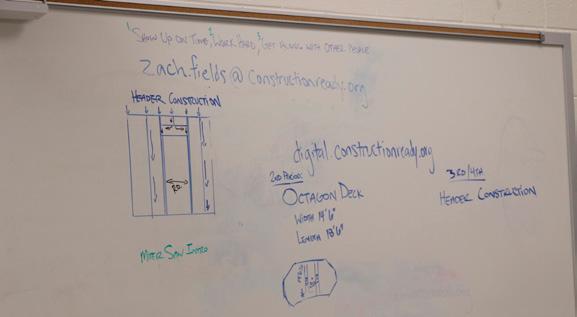 1 Show Up On Time, 2 Work Hard, 3 Get Along with Other People
zach.fields@constructionready.org
Header Construction
digital.constructionready.org
2nd Period:
Octagon Deck
Width 14'6"
Length 18'6"
3rd/4th
Header Construction
Miter Saw Intro